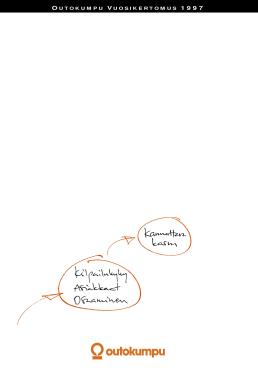 OUTOKUMPU VUOSIKERTOMUS 1997
Kannattava
kasvu
Kilpailukyky
Asiakkaat
Osaaminen
outokumpu